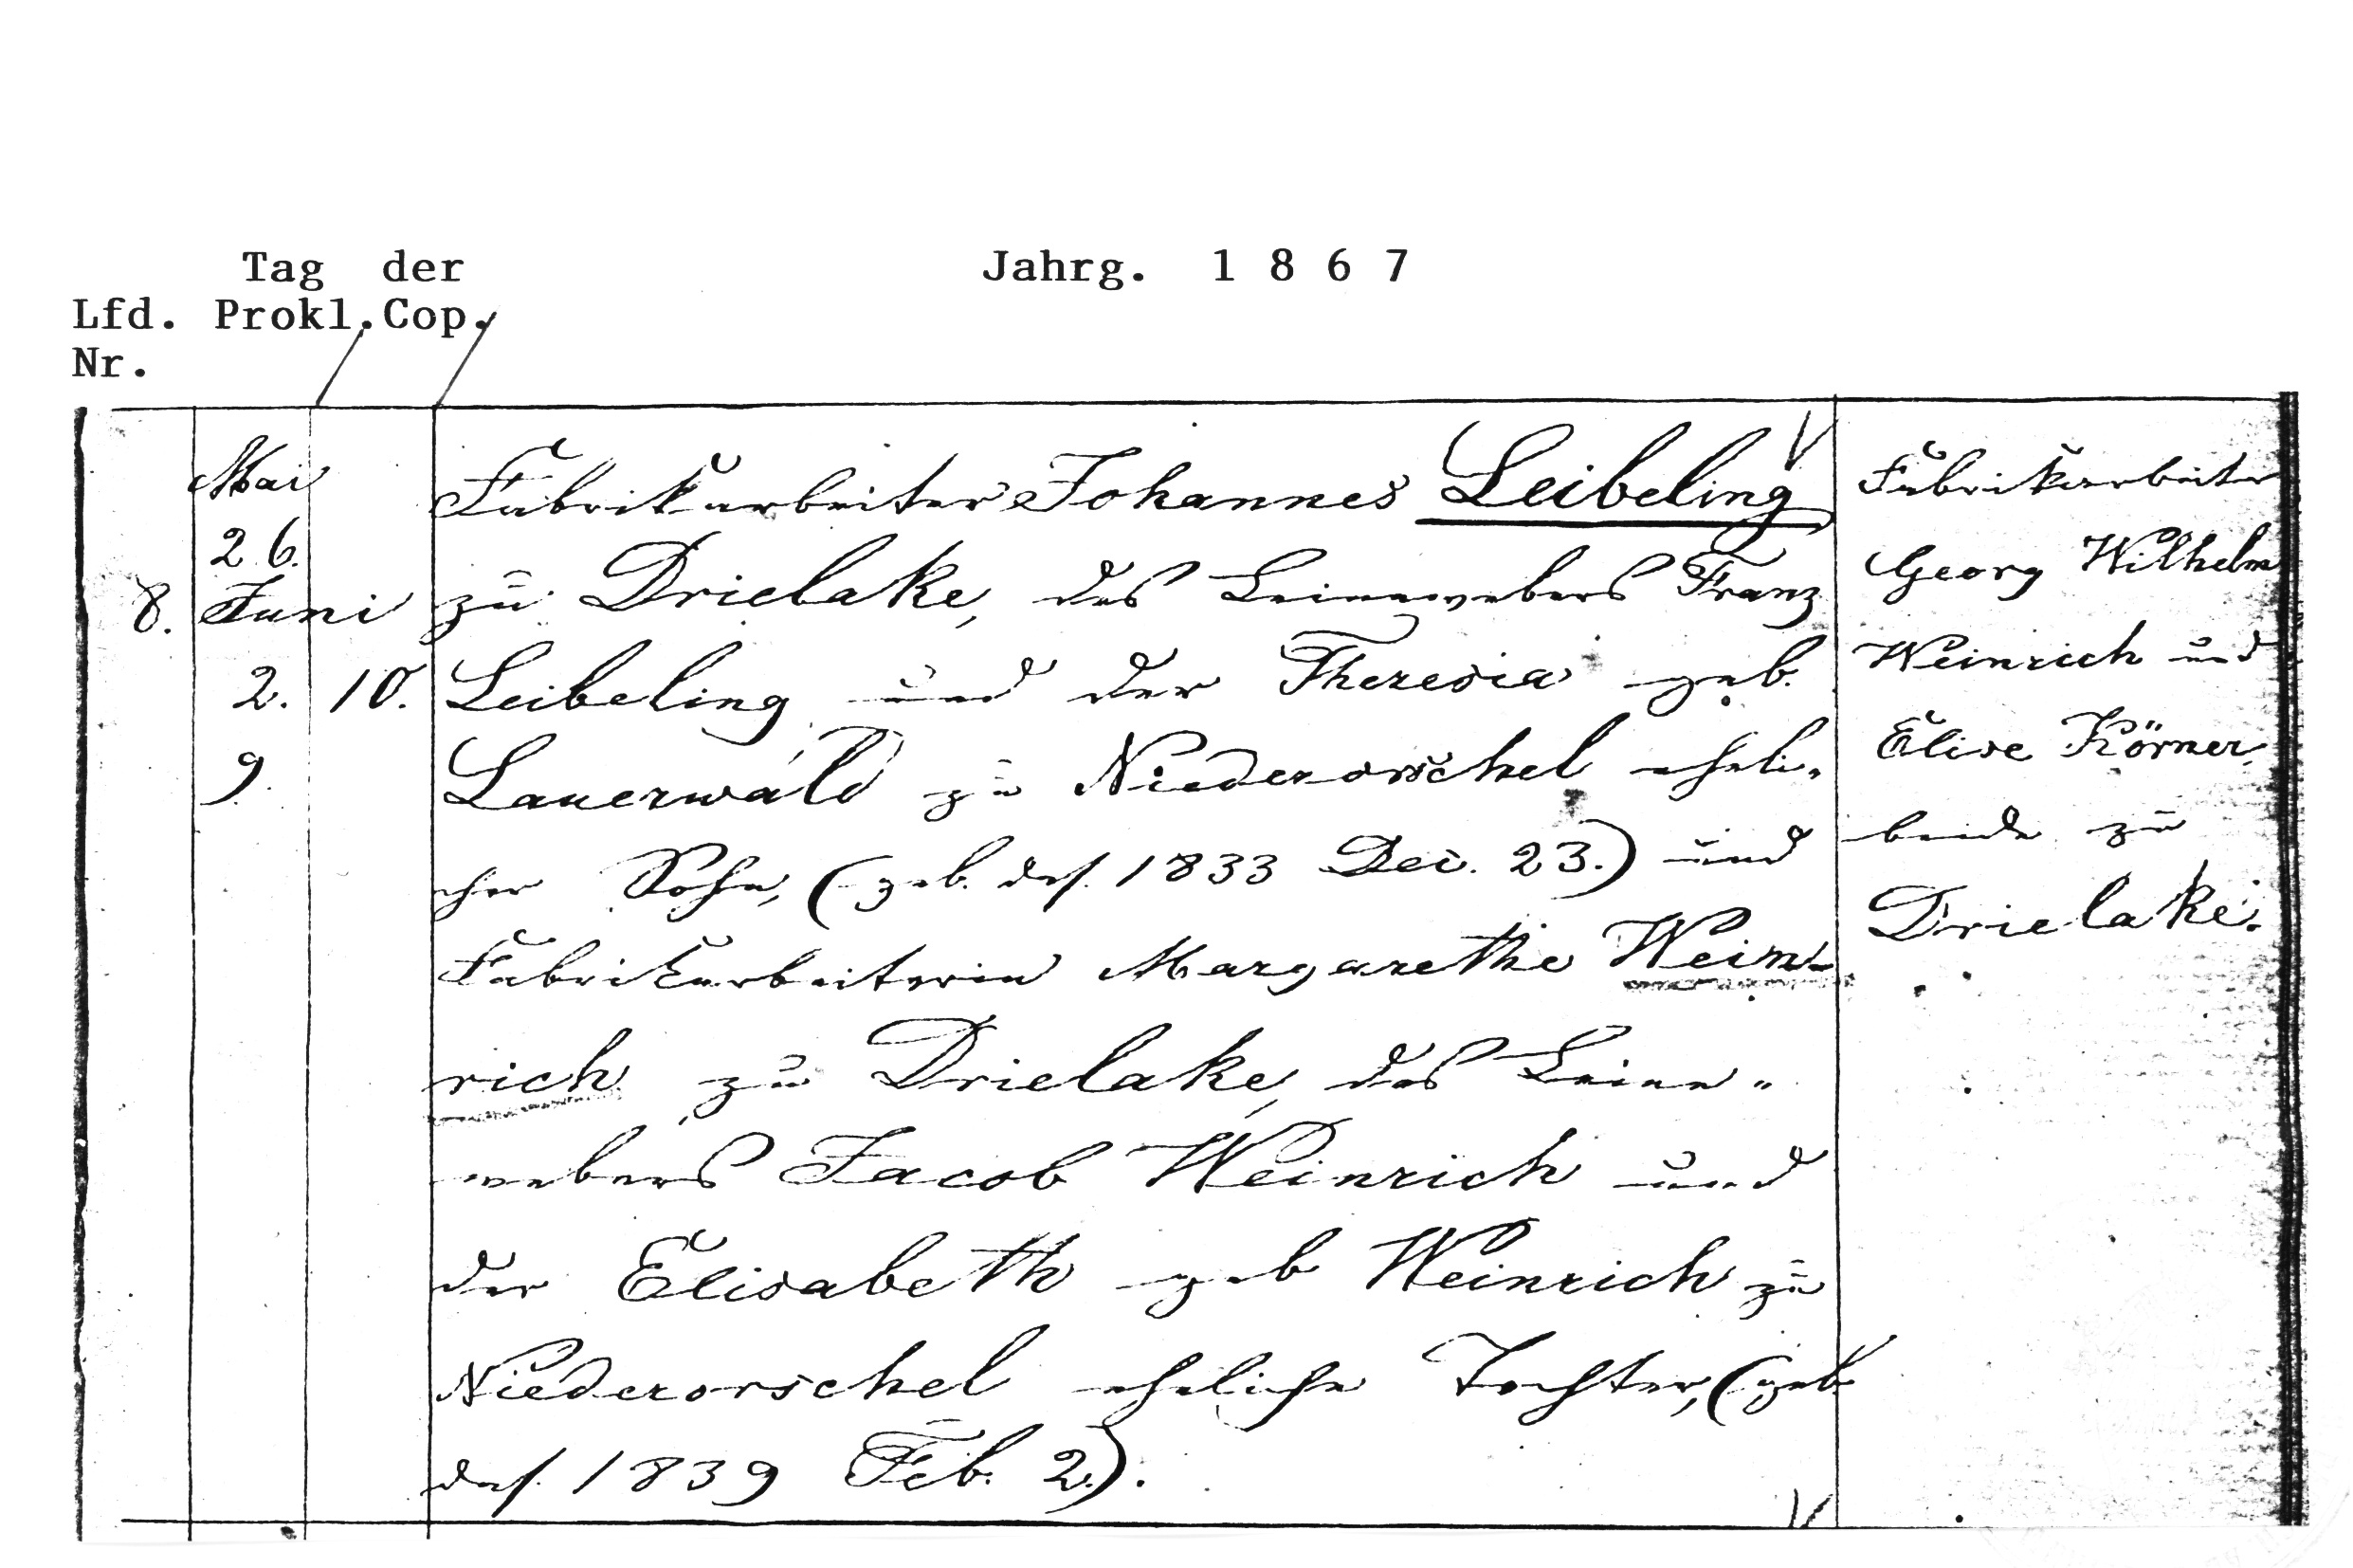 Tag der Jahrg. 1 8 6 7
Lfd. Prokl. Cop.
Nr.
8.
Mai
26.
Juni
2. 10.
9
Fabrikarbeiter Johannes Leibeling
zu Drielake, des Leinewebers Franz
Leibeling und der Theresia geb.
Lauerwald zu Niederorschel eheli-
cher Sohn, (geb. das. 1833 Dec. 23.) und
Fabrikarbeiterin Margarethe Wein-
rich zu Drielake, des Leine-
webers Jacob Weinrich und
der Elisabeth geb Weinrich zu
Niederorschel eheliche Tochter, (geb.
das. 1839 Feb. 2.).
Fabrikarbeiter
Georg Wilhelm
Weinrich und
Elise Körner,
beide zu
Drielake.